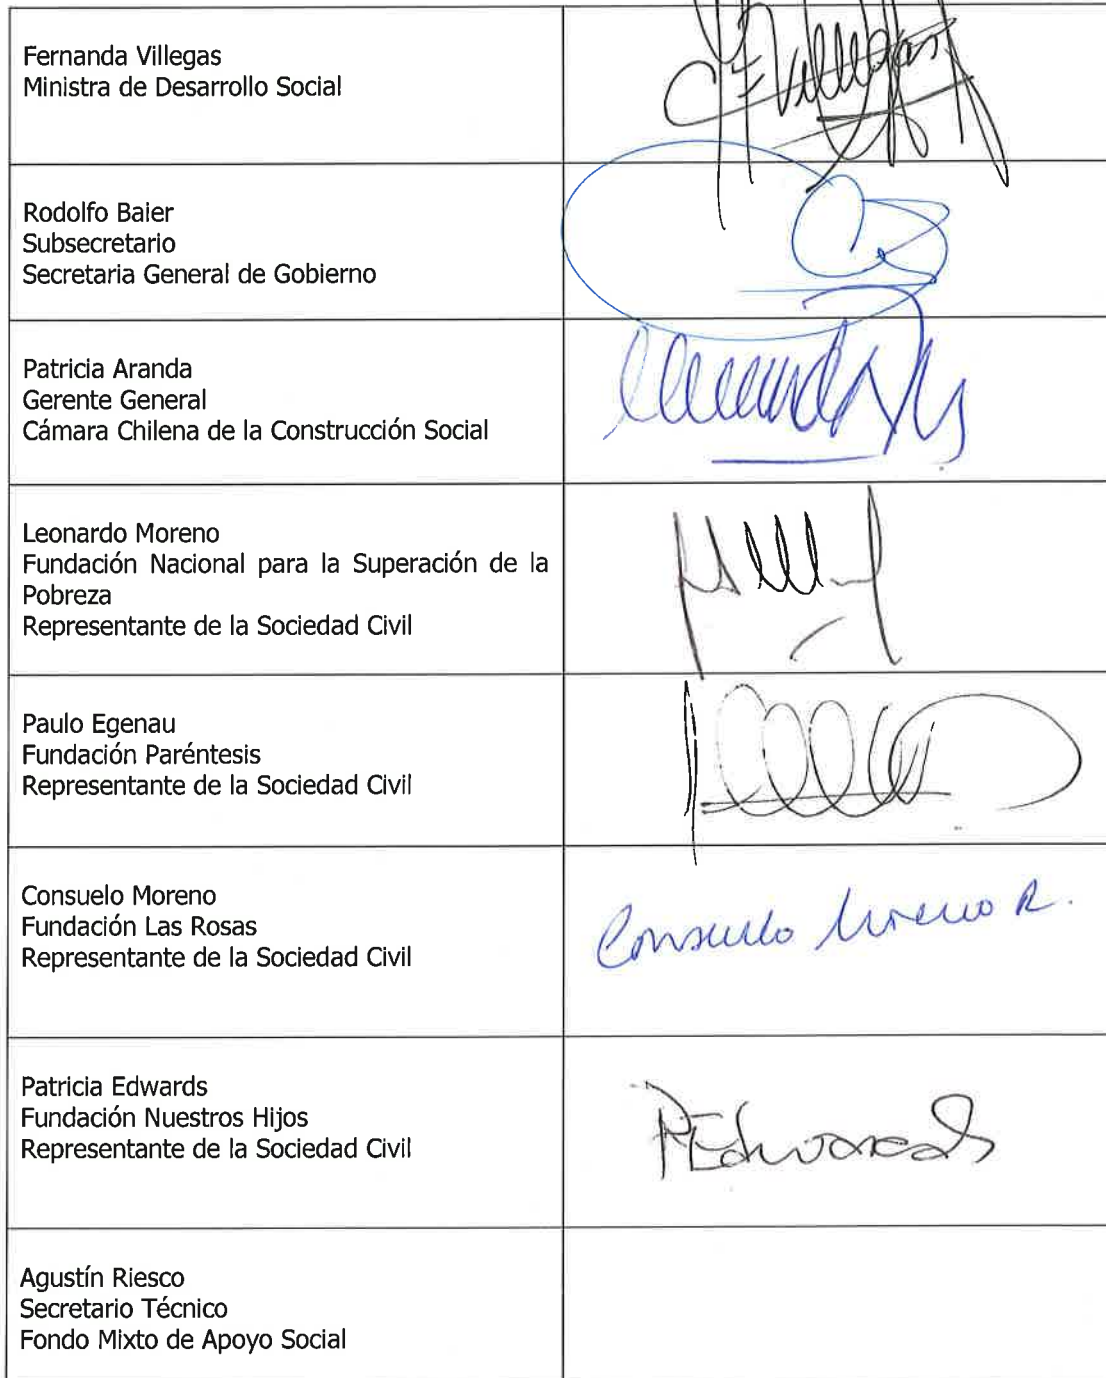 Fernanda Villegas
Ministra de Desarrollo Social
F Villegas
Rodolfo Baier
Subsecretario
Secretaria General de Gobierno
Patricia Aranda
Gerente General
Cámara Chilena de la Construcción Social
Leonardo Moreno
Fundación Nacional para la Superación de la
Pobreza
Representante de la Sociedad Civil
Paulo Egenau
Fundación Paréntesis
Representante de la Sociedad Civil
Consuelo Moreno
Fundación Las Rosas
Representante de la Sociedad Civil
Consuelo Moreno R.
Patricia Edwards
Fundación Nuestros Hijos
Representante de la Sociedad Civil
PEdwards
Agustín Riesco
Secretario Técnico
Fondo Mixto de Apoyo Social